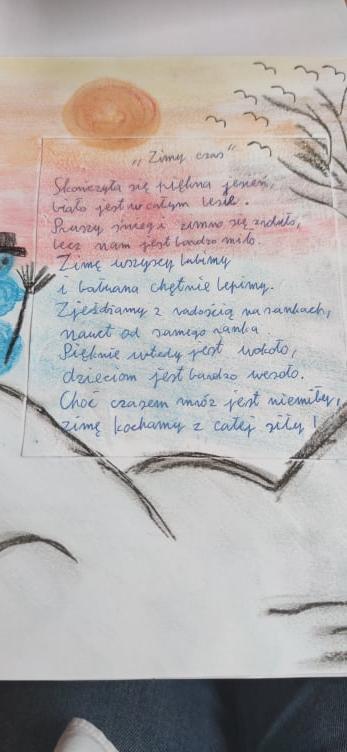 „Zimy czas"
Skończyła się piękna jesień,
biało jest w całym lesie.
Prószy śnieg i zimno się zrobiło,
lecz nam jest bardzo miło.
Zimę wszyscy lubimy
i bałwana chętnie lepimy.
Zjeżdżamy z radością na sankach,
nawet od samego ranka.
Pięknie wtedy jest wokoło,
dzieciom jest bardzo wesoło.
Choć czasem mróz jest niemiły,
zimę kochamy z całej siły!